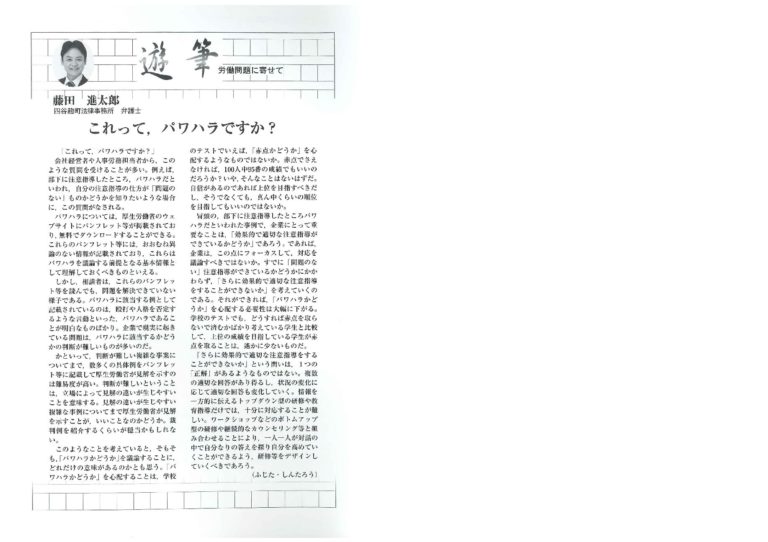 遊筆
労働問題に寄せて
藤田 進太郎
四谷麹町法律事務所 弁護士
これって，パワハラですか？
「これって，パワハラですか？」
会社経営者や人事労務担当者から，この
ような質問を受けることが多い。例えば，
部下に注意指導したところ，パワハラだと
いわれ，自分の注意指導の仕方が「問題の
ない」ものかどうかを知りたいような場合
に，この質問がなされる。
パワハラについては，厚生労働省のウェ
ブサイトにパンフレット等が掲載されてお
り，無料でダウンロードすることができる。
これらのパンフレット等には，おおむね異
論のない情報が記載されており，これらは
パワハラを議論する前提となる基本情報と
して理解しておくべきものといえる。
しかし，相談者は，これらのパンフレッ
ト等を読んでも，問題を解決できていない
様子である。パワハラに該当する例として
記載されているのは，殴打や人格を否定す
るような言動といった，パワハラであるこ
とが明白なものばかり。企業で現実に起き
ている問題は，パワハラに該当するかどう
かの判断が難しいものが多いのだ。
かといって，判断が難しい複雑な事案に
ついてまで，数多くの具体例をパンフレッ
ト等に記載して厚生労働省が見解を示すの
は難易度が高い。判断が難しいということ
は，立場によって見解の違いが生じやすい
ことを意味する。見解の違いが生じやすい
複雑な事例についてまで厚生労働省が見解
を示すことが，いいことなのかどうか。裁
判例を紹介するくらいが穏当かもしれな
い。
このようなことを考えていると，そもそ
も，「パワハラかどうか」を議論することに，
どれだけの意味があるのかとも思う。「パ
ワハラかどうか」を心配することは，学校
のテストでいえば，「赤点かどうか」を心
配するようなものではないか。赤点でさえ
なければ，100人中95番の成績でもいいの
だろうか？いや，そんなことはないはずだ。
自信があるのであれば上位を目指すべきだ
し，そうでなくても，真ん中くらいの順位
を目指してもいいのではないか。
冒頭の，部下に注意指導したところパワ
ハラだといわれた事例で，企業にとって重
要なことは，「効果的で適切な注意指導が
できているかどうか」であろう。であれば，
企業は，この点にフォーカスして，対応を
議論すべきではないか。すでに「問題のな
い」注意指導ができているかどうかにかか
わらず，「さらに効果的で適切な注意指導
をすることができないか」を考えていくの
である。それができれば，「パワハラかど
うか」を心配する必要性は大幅に下がる。
学校のテストでも，どうすれば赤点を取ら
ないで済むかばかり考えている学生と比較
して，上位の成績を目指している学生が赤
点を取ることは，遙かに少ないものだ。
「さらに効果的で適切な注意指導をする
ことができないか」という問いは，１つの
「正解」があるようなものではない。複数
の適切な回答があり得るし，状況の変化に
応じて適切な回答も変化していく。情報を
一方的に伝えるトップダウン型の研修や教
育指導だけでは，十分に対応することが難
しい。ワークショップなどのボトムアップ
型の研修や継続的なカウンセリング等と組
み合わせることにより，一人一人が対話の
中で自分なりの答えを探り自分を高めてい
くことができるよう，研修等をデザインし
ていくべきであろう。
（ふじた・しんたろう）